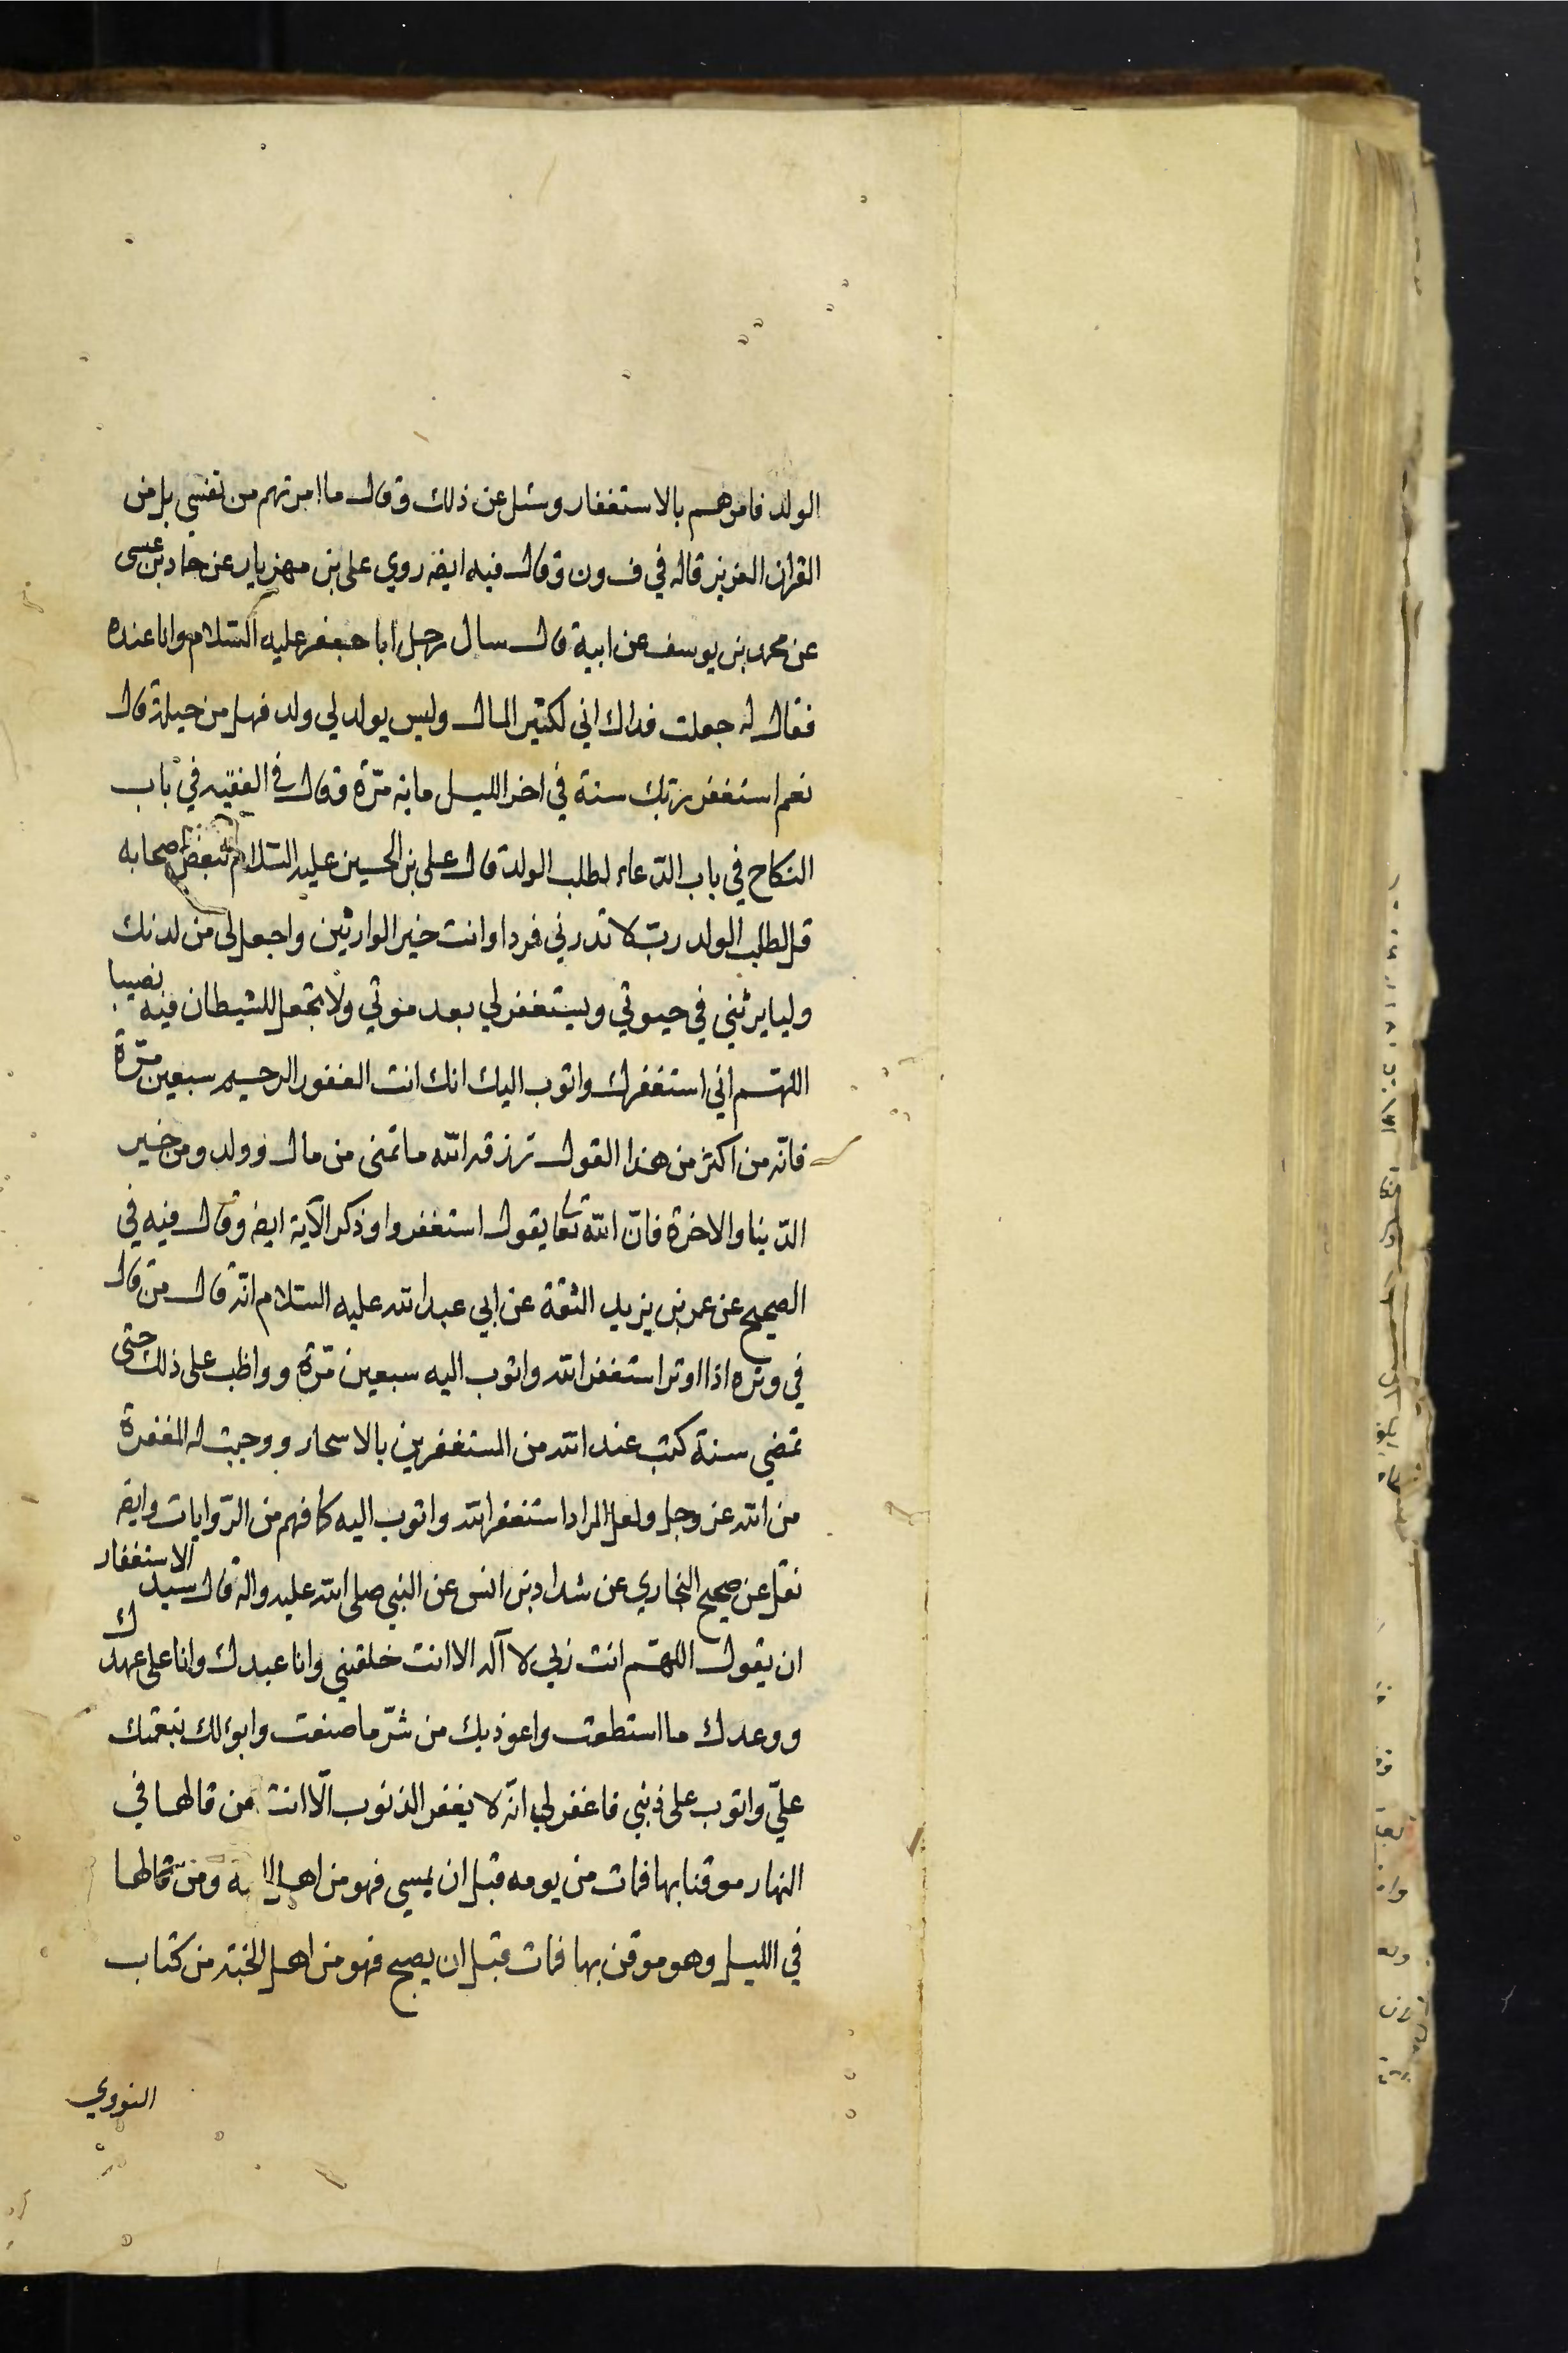 الولد فامرهم بالاستغفار وسئل عن ذلك وقال ما امرتهم من نفسي بل من
القران العزيز قاله في ف ون وقال فيه ايضا روي على بن مهزيار عن حماد بن عيسى
عن محمد بن يوسف عن ابيه قال سال رجل ابا جعفر عليه السلام وانا عنده
فقال له جعلت فداك اني لكثير المال وليس يولد لي ولد فهل من حيلة قال
نعم استغفر ربك سنة في اخر الليل ماية مرّة وقال في الفقيه في باب
النكاح في باب الدّعاء لطلب الولد قال على بن الحسين عليه السلام لبعض اصحابه
قل لطلب الولد ربّ لا تذرني فردا وانت خير الوارثين واجعل لي من لدنك
وليا يرثني في حيوتي ويستغفر لي بعد موتي ولا تجعل للشيطان فيه نصيبا
اللهم اني استغفرك واتوب اليك انك انت الغفور الرحيم سبعين مرّة
فانّه من اكثر من هذا القول رزقه الله ما تمنى من مال وولد ومن خير
الدّنيا والاخرة فانّ الله تعا يقول استغفروا وذكر الآية ايضا وقال فيه في
الصحيح عن عمر بن يزيد الثقة عن ابي عبد الله عليه السلام انّه قال من قال
في وتره اذا اوتر استغفر الله واتوب اليه سبعين مرّة وواظب على ذلك حتى
تمضي سنة كتب عند الله من المستغفرين بالاسحار ووجبت له المغفرة
من الله عز وجل ولعل المراد استغفر الله واتوب اليه كما فهم من الرّوايات وايضا
نقل عن صحيح البخاري عن شداد بن انس عن النبي صلى الله عليه واله قال سيد الاستغفار
ان يقول اللهم انت ربي لا آله الا انت خلقتني وانا عبدك وانا على عهدك
ووعدك ما استطعت واعوذ بك من شرّ ما صنعت وابوء لك بنعمتك
عليّ واتوب على ذنبي فاغفر لي انّه لا يغفر الذنوب الّا انت من قالها في
النهار موقنا بها فمات من يومه قبل ان يمسي فهو من اهل ومن قالها
في الليل وهو موقن بها فمات قبل ان يصبح فهو من اهل الجنة من كتاب
النووي